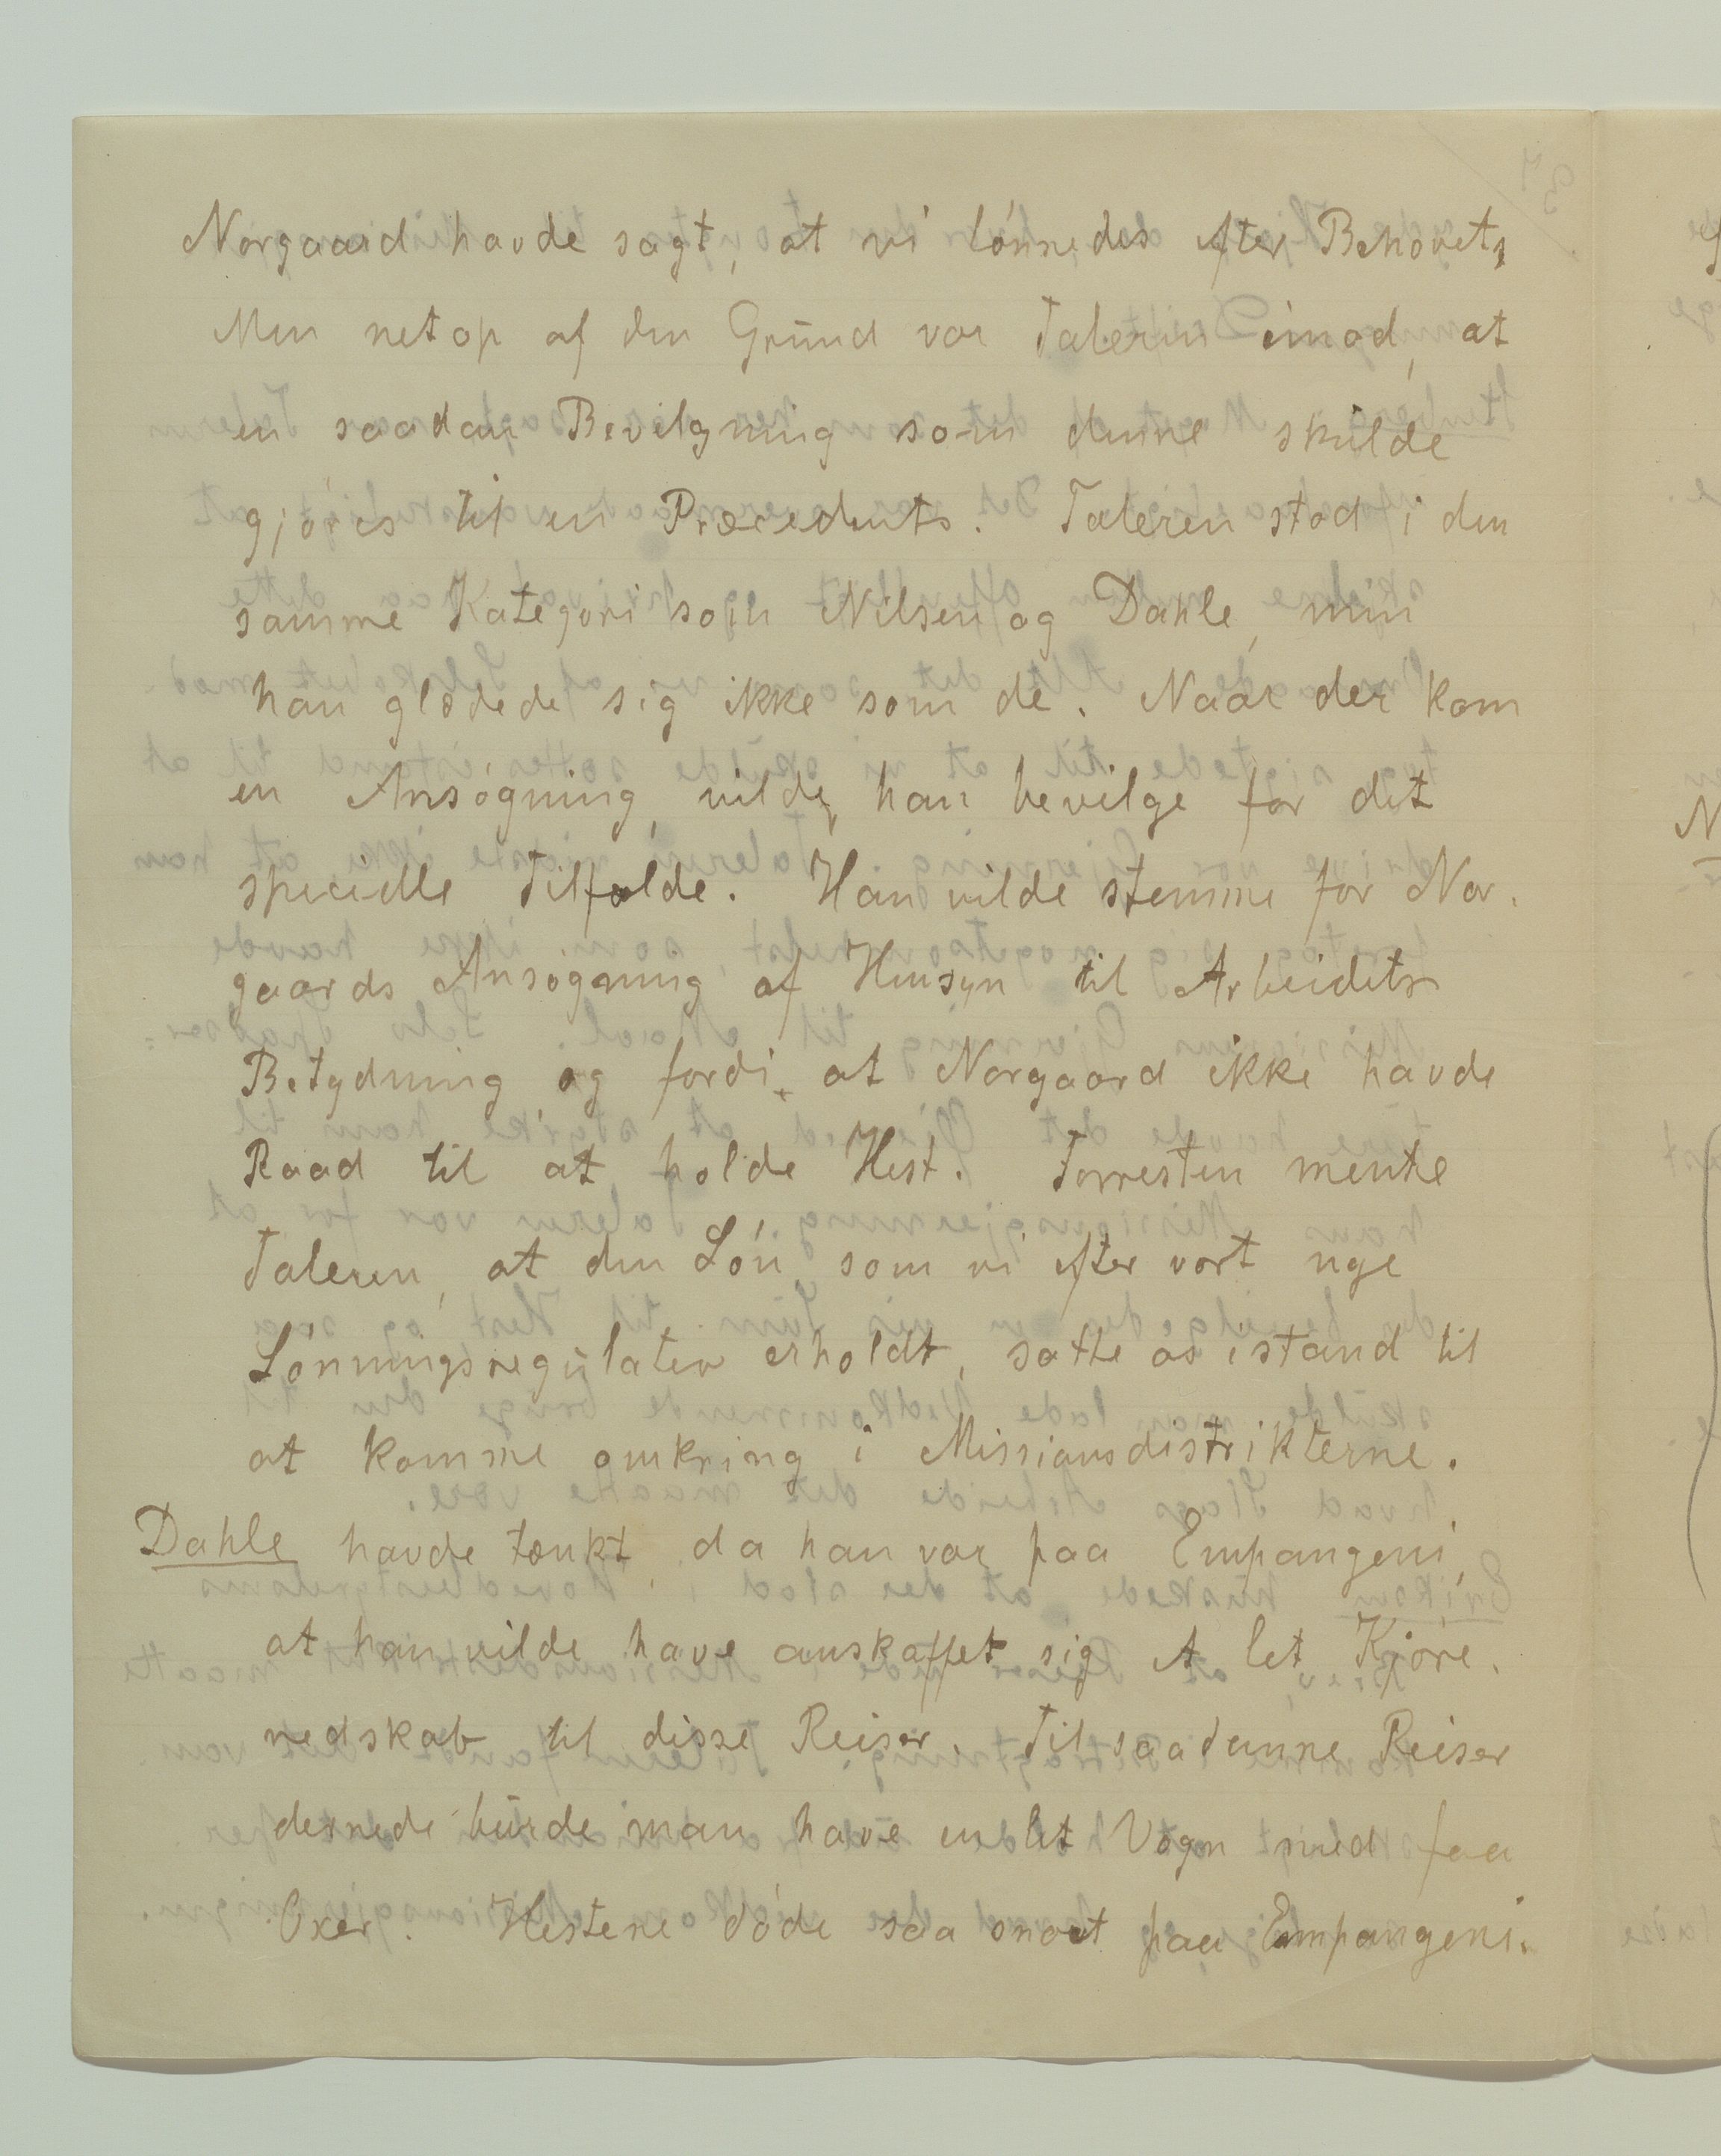 Norgaard havde sagt, at vi lønnedes efter Behovet,
Men netop af den Grund var Taleren imod, at
en saadan Bevilgning som denne skulde
gjøres til en Præcedents. Taleren stod i den
samme Kategori som Nilsen og Dahle, men
han glædede sig ikke som de. Naar der kom
en Ansøgning, vilde han bevilge for det
specielle Tilfælde. Han vilde stemme for Nor-
gaards Ansøgning af Hensyn til Arbeidets
Betydning og fordi at Norgaard ikke havde
Raad til at holde Hest. Forresten mente
Taleren, at den Løn, som vi efter vort nye
Lønningsregulativ erholdt, satte os istand til
at komme omkring i Missionsdistrikterne.
Dahle havde tænkt, da han var paa Empangeni,
at han vilde have anskaffet sig et let Kjøre-
redskab til disse Reiser. Til saadanne Reiser
dernede burde man have en let Vogn med faa
Oxer. Hestene døde saa snart paa Empangeni.